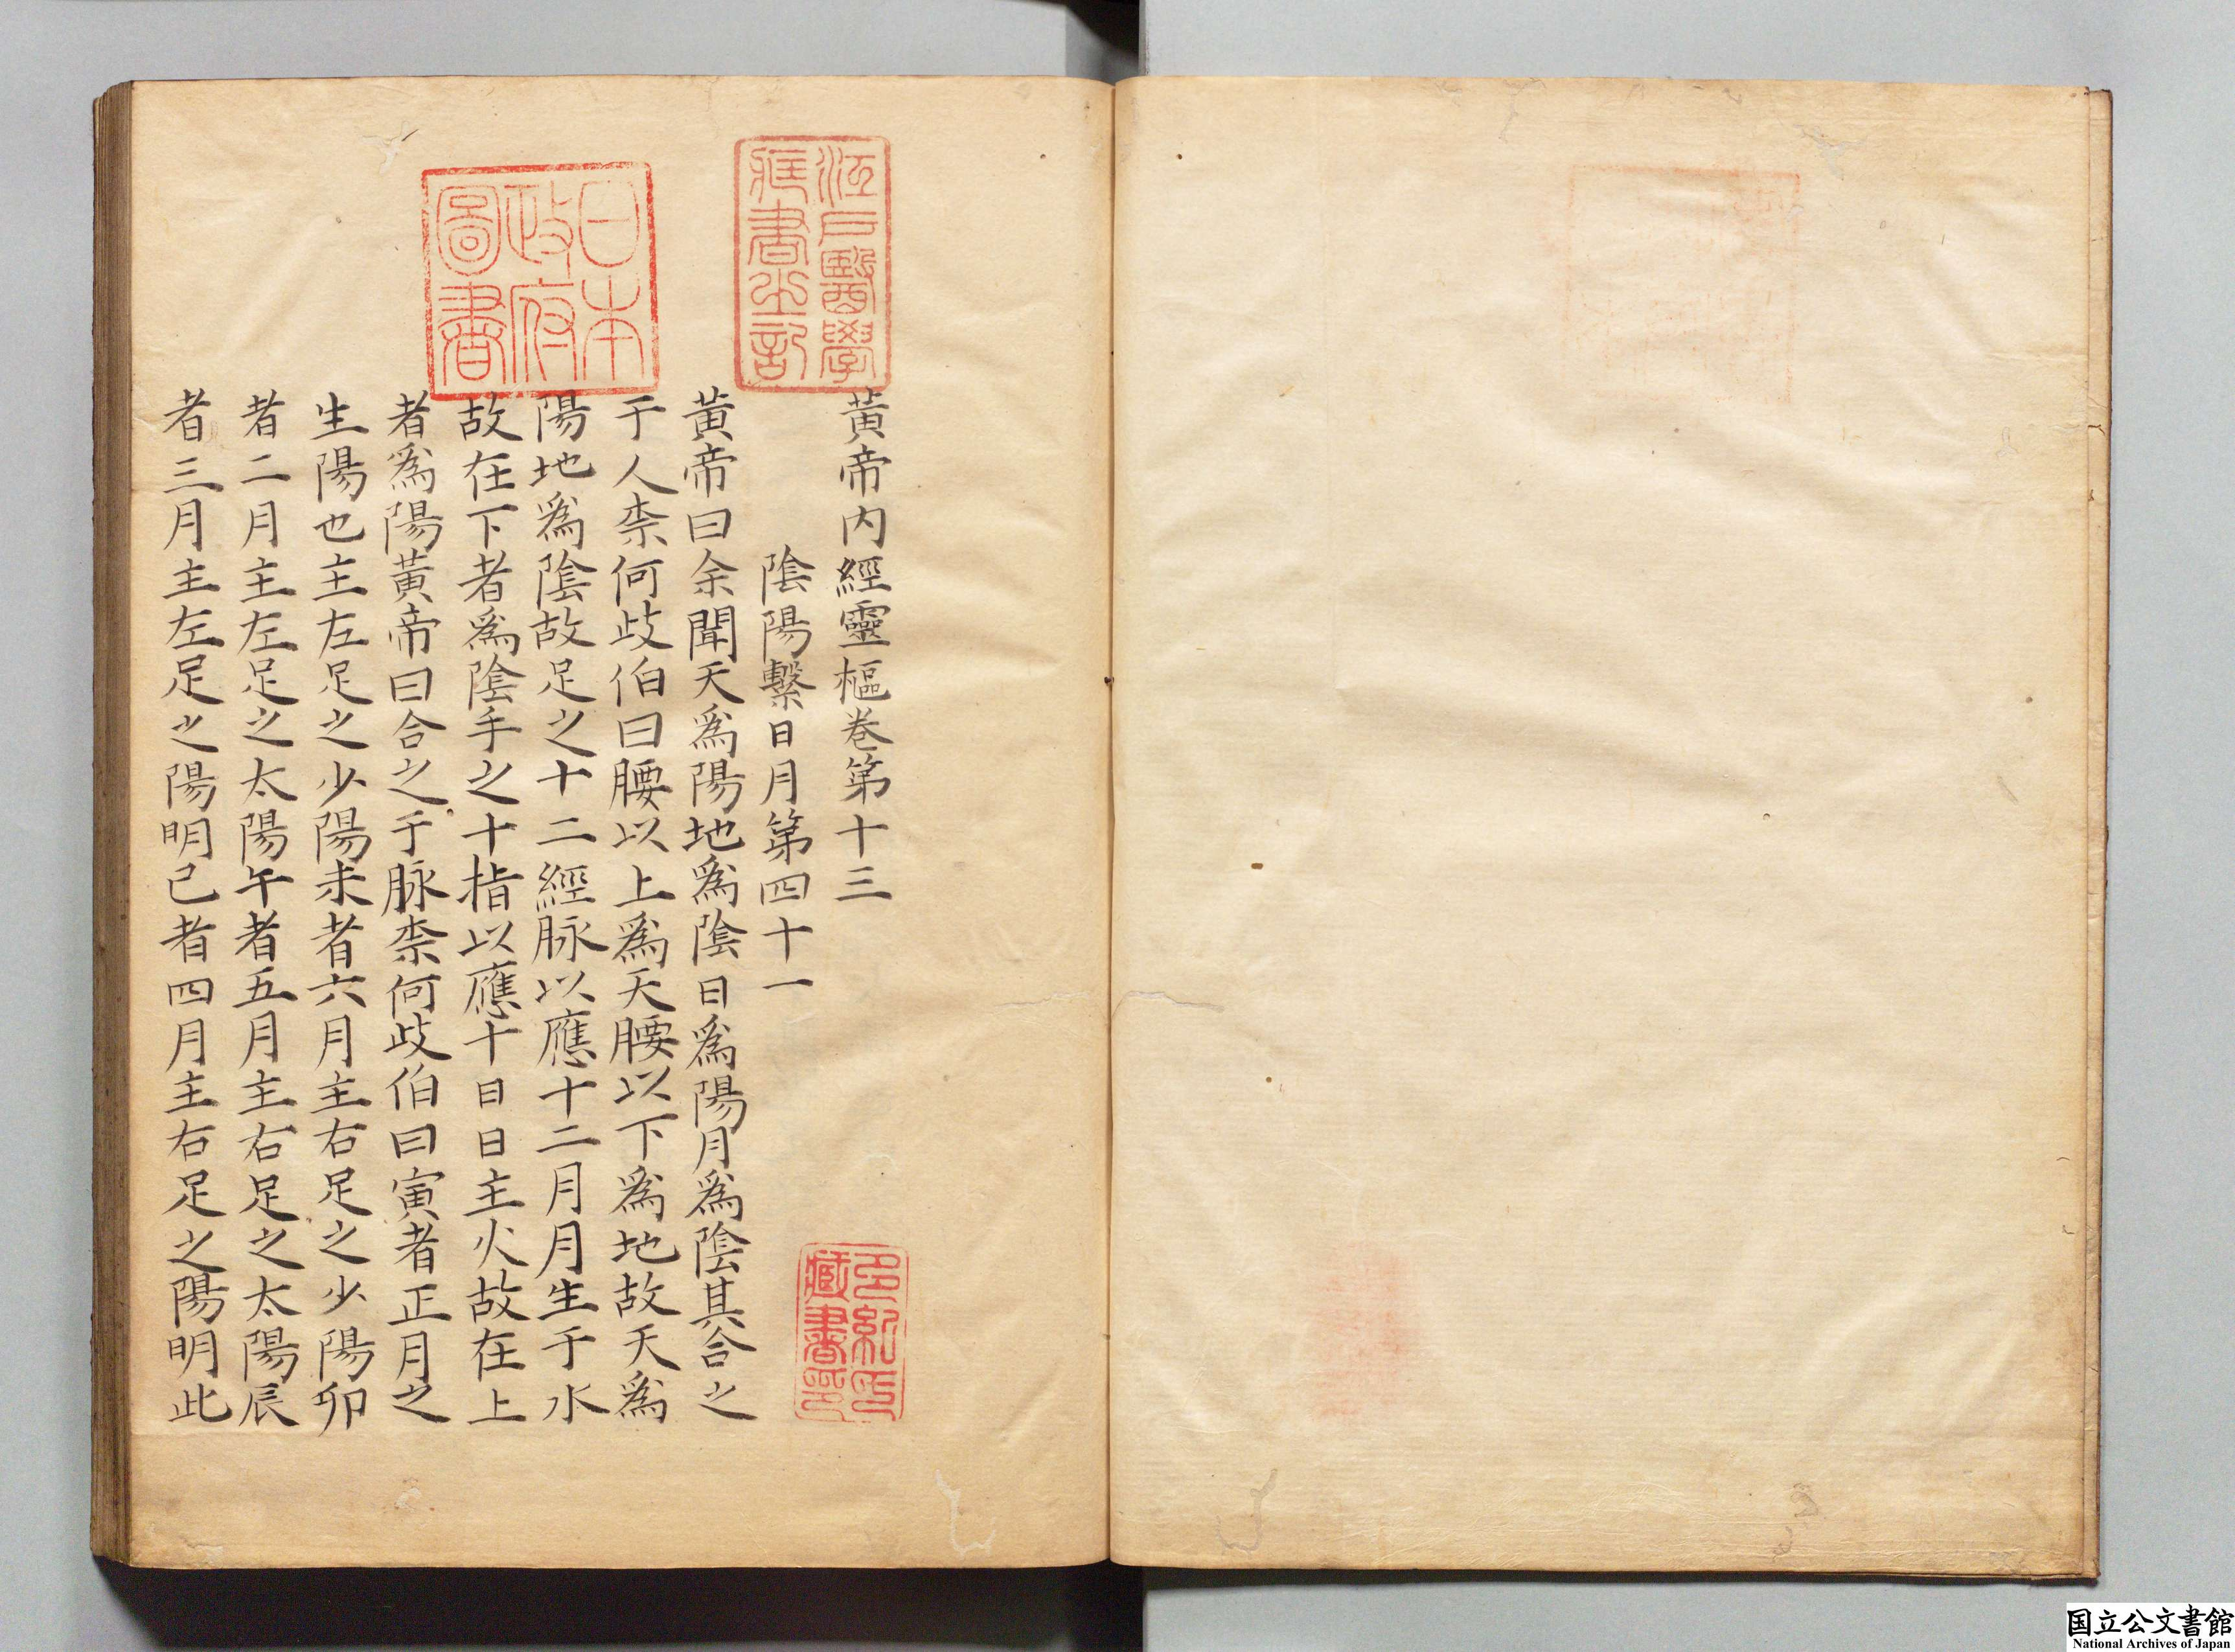 黃帝内經靈樞卷第十三
陰陽繫日月第四十一
黃帝曰余聞天爲陽地爲陰日爲陽月爲陰其合之
于人柰何歧伯曰腰以上爲天腰以下爲地故天爲
陽地爲陰故足之十二經脉以應十二月月生于水
故在下者爲陰手之十指以應十日日主火故在上
者爲陽黃帝曰合之于脉柰何歧伯曰寅者正月之
生陽也主左足之少陽未者六月主右足之少陽卯
者二月主左足之太陽午者五月主右足之太陽辰
者三月主左足之陽明已者四月主右足之陽明此
江戸醫學
藏書之記
日本
政府
圖書
多紀氏
藏書印
国立公文書館
National Archives of Japan